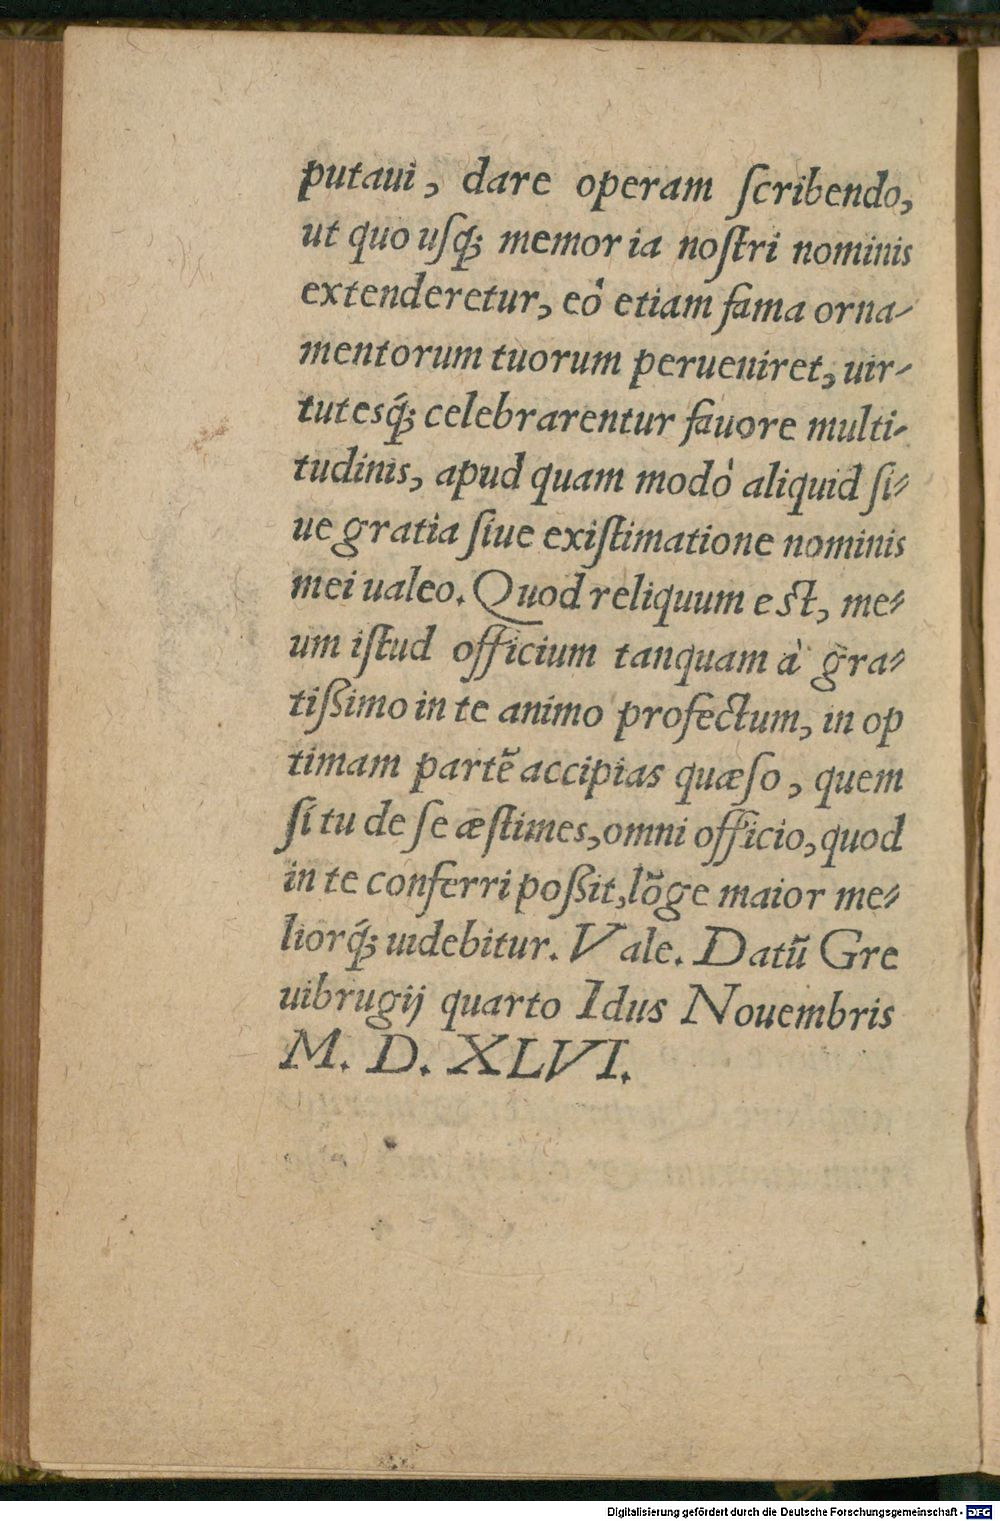 putaui, dare operam ſcribendo,
ut quo uſq; memoria noſtri nominis
extenderetur, eò etiam fama orna-
mentorum tuorum perueniret, uir-
tutesq́; celebrarentur fauore multi-
tudinis, apud quam modò aliquid ſi-
ue gratia ſiue exiſtimatione nominis
mei ualeo. Quod reliquum est, me-
um iſtud officium tanquam à gra-
tißimo in te animo profectum, in op
timam partẽ accipias quæſo, quem
ſi tu de ſe æſtimes, omni officio, quod
in te conferri poßit, lõge maior me-
liorq́; uidebitur. Vale. Datũ Gre
uibrugij quarto Idus Nouembris
M. D. XLVI.
Digitalisierung gefördert durch die Deutsche Forschungsgemeinschaft - DFG